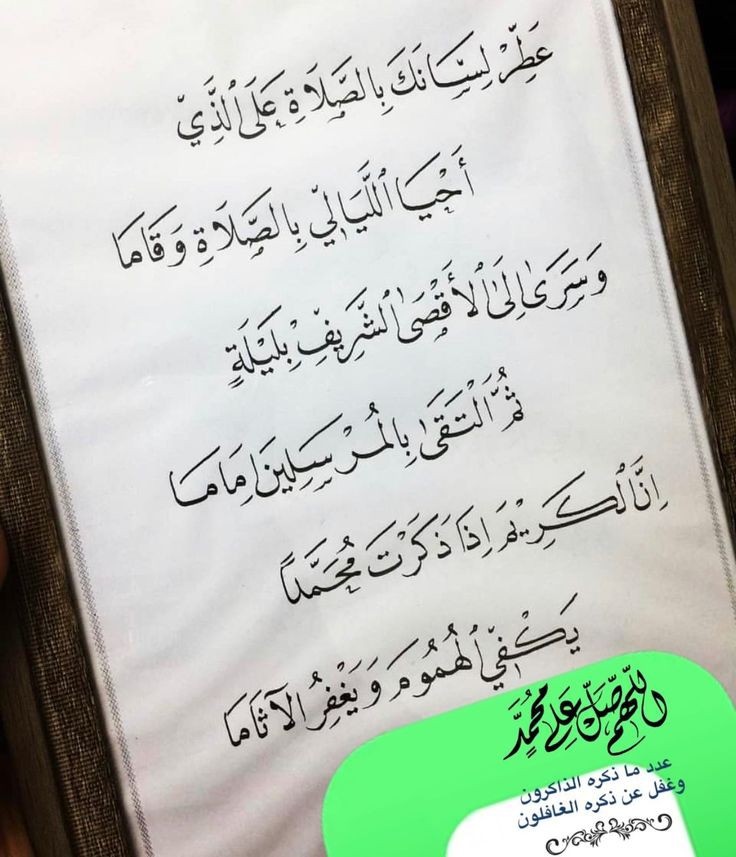 عَطِّرْ لِسَانَكَ بِالصَّلَاةِ عَلَى الَّذِي
أَحْيَا اللَّيَالِي بِالصَّلَاةِ وَقَامَا
وَسَرَىٰ اِلَىٰ الْأَقْصَىٰ الشَّرِيفِ بِلَيْلَةٍ
ثُمَّ الْتَقَىٰ بِالْمُرْسَلِينَ اِمَامَا
اِنَّ الْكَرِيْمَ اِذَا ذَكَرْتَ مُحَمَّدًا
يَكْفِي الْهُمُومَ وَيَغْفِرُ الآثَامَا
اللّهُمَّ صَلِّ عَلَى مُحَمَّدٍ
عدد ما ذكره الذاكرون
وغفل عن ذكره الغافلون